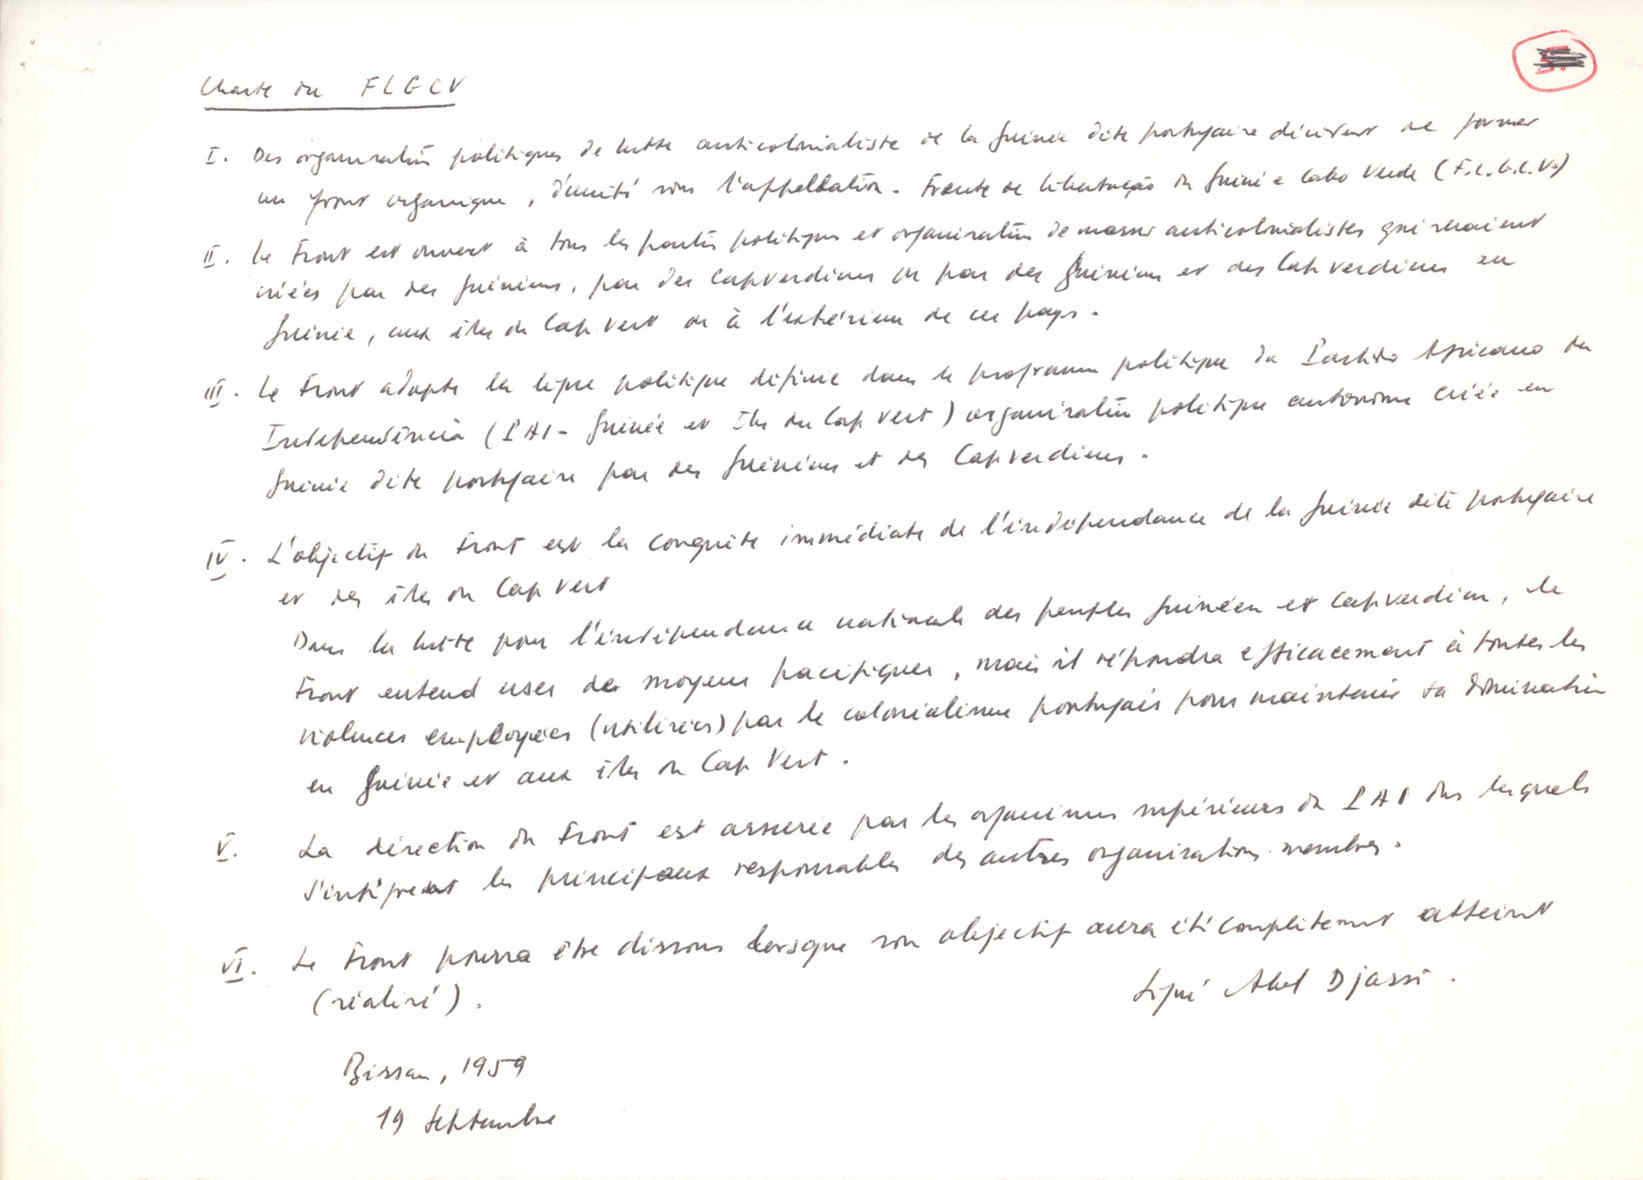 Charte du FLGCV
I. Des organisations politiques de lutte anticolonialiste de la Guinée dite portugaise décident de former
un front organique, d'unité sous l'appellation. Frente de Libertação da Guiné e Cabo Verde (F.L.G.C.V.)
II. Le Front est ouvert à tous les partis politiques et organisations de masses anticolonialistes qui seraient
créées par des Guinéens, par des Capverdiens ou par des Guinéens et des Capverdiens en
Guinée, aux îles du Cap Vert ou à l'extérieur de ces pays.
III. Le Front adopte la ligne politique définie dans le programme politique du Partido Africano da
Independência (PAI - Guinée et Iles du Cap Vert) organisation politique autonome créée en
Guinée dite portugaise par des Guinéens et des Capverdiens.
IV. L'objectif du Front est la conquête immédiate de l'indépendance de la Guinée dite portugaise
et des îles du Cap Vert
Dans la lutte pour l'indépendance nationale des peuples guinéen et capverdien, le
Front entend user de moyens pacifiques, mais il répondra efficacement à toutes les
violences employées (utilisées) par le colonialisme portugais pour maintenir sa domination
en Guinée et aux îles du Cap Vert.
V. La direction du Front est assurée par les organismes supérieurs du PAI dans lesquels
s'intègrent les principaux responsables des autres organisations membres.
VI. Le Front pourra être dissous lorsque son objectif aura été complètement atteint
(réalisé).
Signé Abel Djassi.
Bissau, 1959
19 Septembre